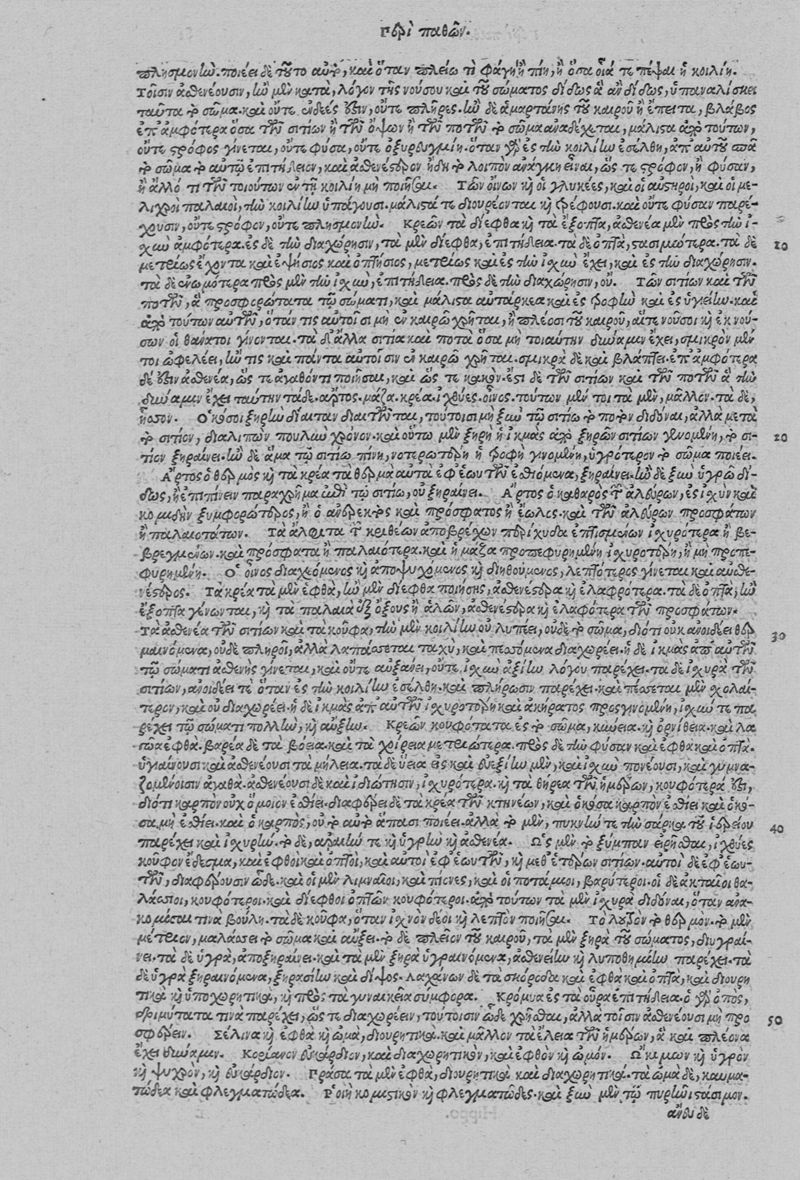 Περὶ παθῶν.
πλησμονὴν. ποιέει δὲ τοῦτο αὐτὸ, καὶ ὅταν πλείω τὶ φάγῃ ἢ πίῃ, ἢ ὅσα οἷά τε πέψαι ἡ κοιλίη.
Τοῖσιν ἀσθενέουσιν, ἢν μὲν κατὰ λόγον τῆς νούσου καὶ τοῦ σώματος διδῷς ἃ ἂν διδῷς, ὑπαναλίσκει
ταῦτα τὸ σῶμα. καὶ οὔτε ἐνδεές ἐστιν, οὔτε πλῆρες. ἢν δὲ ἁμαρτάνῃς τοῦ καιροῦ ἢ ἔπειτα, βλάβος
ἐπ' ἀμφότερα ὅσα τῶν σιτίων ἢ τῶν ὄψων ἢ τῶν ποτῶν τὸ σῶμα ἀναδέχεται, μάλιστα ἀπὸ τούτων,
οὔτε στρόφος γίνεται, οὔτε φῦσα, οὔτε ὀξυρεγμίη. ὅταν γὰρ ἐς τὴν κοιλίην ἐσέλθῃ, ἀπ' αὐτοῦ σπᾷ
τὸ σῶμα τὸ αὐτῷ ἐπιτήδειον, καὶ ἀσθενέστερον ἤδη τὸ λοιπὸν ἀνάγκη εἶναι, ὥς τε στρόφον, ἢ φῦσαν,
ἢ ἄλλό τι τῶν τοιούτων ἐν τῇ κοιλίῃ μὴ ποιῆσαι. Τῶν οἴνων καὶ οἱ γλυκέες, καὶ οἱ αὐστηροὶ, καὶ οἱ με-
λιχροὶ παλαιοὶ, τὴν κοιλίην ὑπάγουσι. μάλιστά τε διουρέονται καὶ τρέφουσι. καὶ οὔτε φῦσαν παρέ-
χουσιν, οὔτε στρόφον, οὔτε πλησμονὴν. Κρεῶν τὰ δίεφθα καὶ τὰ ἔξοπτα, ἀσθενέα μὲν πρὸς τὴν ἰ-
χὺν ἀμφότερα. ἐς δὲ τὴν διαχώρησιν, τὰ μὲν δίεφθα, ἐπιτήδεια. τὰ δὲ ὀπτὰ, στασιμώτερα. τὰ δὲ 10
μετρίως ἔχοντα καὶ ἑψήσιος καὶ ὀπτήσιος, μετρίως καὶ ἐς τὴν ἰσχὺν ἔχει, καὶ ἐς τὴν διαχώρησιν.
τὰ δὲ ἐνωμότερα πρὸς μὲν τὴν ἰσχὺν, ἐπιτήδεια. πρὸς δὲ τὴν διαχώρησιν, οὔ. Τῶν σιτίων καὶ τῶν
ποτῶν, ἃ προσφερώτατα τῷ σώματι, καὶ μάλιστα αὐτάρκεα καὶ ἐς τροφὴν καὶ ἐς ὑγιείην. καὶ
ἀπὸ τούτων αὐτῶν, ὅτάν τις αὐτοῖσι μὴ ἐν καιρῷ χρῆται, ἢ πλέοσι τοῦ καιροῦ, αἵ τε νοῦσοι καὶ ἐκ νού-
σων οἱ θάνατοι γίνονται. τὰ δ' ἄλλα σιτία καὶ ποτὰ ὅσα μὴ τοιαύτην δύναμιν ἔχει, σμικρὸν μέν
τοι ὠφελέει, ἢν τις καὶ πάντα αὐτοῖσιν ἐν καιρῷ χρῆται. σμικρὰ δὲ καὶ βλάπτει. ἐπ' ἀμφότερα
δέ ἐστιν ἀσθενέα, ὥς τε ἀγαθόν τι ποιῆσαι, καὶ ὥς τε κακόν. ἔστι δὲ τῶν σιτίων καὶ τῶν ποτῶν ἃ τὴν
δύναμιν ἔχει ταύτην τάδε. ἄρτος. μάζα. κρέα. ἰχθύες. οἶνος. τούτων μέν τοι τὰ μὲν, μᾶλλον. τὰ δὲ,
ἧσσον. Ὁκόσοι ξηρὴν δίαιταν διαιτῶνται, τούτοισι μὴ ἕξω τῷ σιτίῳ τὸ ποτὸν διδόναι, ἀλλὰ μετὰ
τὸ σιτίον, διαλιπὼν πουλὺν χρόνον. καὶ οὕτω μὲν ξηρὴ ἡ ἰκμὰς ἀπὸ ξηρῶν σιτίων γινομένη, τὸ σι- 20
τίον ξηραίνει. ἢν δὲ ἅμα τῷ σιτίῳ πίνῃ, νοτερωτέρη ἡ τροφὴ γινομένη, ὑγρότερον τὸ σῶμα ποιέει.
Ἄρτος ὁ θερμὸς καὶ τὰ κρέα τὰ θερμὰ αὐτὰ ἐφ' ἑωυτῶν ἐσθιόμενα, ξηραίνει. ἢν δὲ ἕξω ὑγρῷ δι-
δῷς, ἢ ἐπιπίνειν παραχρῆμα ἐπὶ τῷ σιτίῳ, οὐ ξηραίνει. Ἄρτος ὁ καθαρὸς τῶν ἀλεύρων, ἐς ἰσχὺν καὶ
κομιδὴν ξυμφορώτερος, ἢ ὁ ἀνέρεικτος καὶ πρόσφατος ἢ ἕωλος. καὶ τῶν ἀλεύρων προσφάτων
ἢ παλαιοτάτων. Τὰ ἄλφιτα τῶν κριθέων ἀποβρέχων περιχύδα ἐπτισμένων ἰσχυρότερα ἢ βε-
βρεγμένων. καὶ πρόσφατα ἢ παλαιότερα. καὶ ἡ μάζα προπεφυρημένη ἰσχυροτέρη, ἢ μὴ προπε-
φυρημένη. Ὁ οἶνος διαχεόμενος καὶ ἀποψυχόμενος καὶ διηθούμενος, λεπτότερος γίνεται καὶ ἀσθε-
νέστερος. Τὰ κρέα τὰ μὲν ἑφθὰ, ἢν μὲν δίεφθα ποιήσῃς, ἀσθενέστερα καὶ ἐλαφρότερα. τὰ δὲ ὀπτὰ, ἢν
ἔξοπτα γένωνται, καὶ τὰ παλαιὰ ἐξ ὄξους ἢ ἁλῶν, ἀσθενέστερα καὶ ἐλαφρότερα τῶν προσφάτων.
Τὰ ἀσθενέα τῶν σιτίων καὶ τὰ κοῦφα, τὴν μὲν κοιλίην οὐ λυπέει, οὐδὲ τὸ σῶμα, διότι οὐκ ἀνοιδέει θερ- 30
μαινόμενα, οὐδὲ πληροῖ, ἀλλὰ λαπάσσεται ταχὺ, καὶ πεσσόμενα διαχωρέει. ἡ δὲ ἰκμὰς ἀπ' αὐτῶν
τῷ σώματι ἀσθενὴς γίνεται, καὶ οὔτε αὐξάνει, οὔτε ἰσχὺν ἀξίην λόγου παρέχει. τὰ δὲ ἰσχυρὰ τῶν
σιτίων, ἀνοιδέει τε ὅταν ἐς τὴν κοιλίην ἐσέλθῃ. καὶ πλήρωσιν παρέχει. καὶ πέσσεται μὲν σχολαί-
τερον, καὶ οὐ διαχωρέει. ἡ δὲ ἰκμὰς ἀπ' αὐτῶν ἰσχυροτέρη καὶ ἀκήρατος προσγινομένη, ἰσχύν τε πα-
ρέχει τῷ σώματι πολλὴν, καὶ αὔξην. Κρεῶν κουφότατα ἐς τὸ σῶμα, κύνεια. καὶ ὀρνίθεια. καὶ λα-
γῶα ἑφθά. βαρέα δὲ τὰ βόεια. καὶ τὰ χοίρεια μετριώτερα. πρὸς δὲ τὴν φύσιν καὶ ἑφθὰ καὶ ὀπτά.
ὑγιαίνουσι καὶ ἀσθενέουσι τὰ μήλεια. τὰ δὲ ὕεια ἐς καὶ εὐεξίην μὲν, καὶ ἰσχὺν πονέουσι, καὶ γυμνα-
ζομένοισιν ἀγαθά. ἀσθενέουσι δὲ καὶ ἰδιώτῃσιν, ἰσχυρότερα. καὶ τὰ θήρεα τῶν ἡμέρων, κουφότερά ἐστι,
διότι καρπὸν οὐχ ὅμοιον ἐσθίει. διαφέρει δὲ τὰ κρέα τῶν κτηνέων, καὶ ὁκόσα καρπὸν ἐσθίει καὶ ὁκό-
σα μὴ ἐσθίει. καὶ ὁ καρπὸς, οὐ τὸ αὐτὸ ἅπασι ποιέει. ἀλλὰ τὸ μὲν, πυκνήν τε τὴν σάρκα τοῦ ἱερείου 40
παρέχει καὶ ἰσχυρήν. τὸ δὲ, ἀραιήν τε καὶ ὑγρὴν καὶ ἀσθενέα. Ὡς μὲν τὸ ξύμπαν εἰρῆσθαι, ἰχθύες
κοῦφον ἔδεσμα, καὶ ἑφθοὶ καὶ ὀπτοὶ, καὶ αὐτοὶ ἐφ' ἑωυτῶν, καὶ μεθ' ἑτέρων σιτίων. αὐτοὶ δὲ ἐφ' ἑωυ-
τῶν, διαφέρουσιν ὧδε. καὶ οἱ μὲν λιμναῖοι, καὶ πίονες, καὶ οἱ ποτάμιοι, βαρύτεροι. οἱ δὲ ἀκταῖοι θα-
λάσσιοι, κουφότεροι. καὶ δίεφθοι ὀπτῶν κουφότεροι. ἀπὸ τούτων τὰ μὲν ἰσχυρὰ διδόναι, ὅταν ἀνα-
κομίσαι τινὰ βούλῃ. τὰ δὲ κοῦφα, ὅταν ἰσχνὸν δέοι καὶ λεπτὸν ποιῆσαι. Τὸ λουτρὸν τὸ θερμὸν. τὸ μὲν
μέτριον, μαλάσσει τὸ σῶμα καὶ αὔξει. τὸ δὲ πλεῖον τοῦ καιροῦ, τὰ μὲν ξηρὰ τοῦ σώματος, διυγραί-
νει. τὰ δὲ ὑγρὰ, ἀποξηραίνει. καὶ τὰ μὲν ξηρὰ ὑγραινόμενα, ἀσθενείην καὶ λυποθυμίην παρέχει. τὰ
δὲ ὑγρὰ ξηραινόμενα, ξηρασίην καὶ δίψος. Λαχάνων δὲ τὰ σκόροδα καὶ ἑφθὰ καὶ ὀπτὰ, καὶ διουρη
τικὰ καὶ ὑποχωρητικὰ, καὶ πρὸς τὰ γυναικεῖα σύμφορα. Κρόμυα ἐς τὰ οὖρα ἐπιτήδεια. ὁ γὰρ ὀπὸς,
δριμύτατά τινα παρέχει, ὥς τε διαχωρέειν, τούτοισιν ὧδε χρῆσθαι, ἀλλὰ τοῖσιν ἀσθενέουσι μὴ προ 50
σφέρειν. Σέλινα καὶ ἑφθὰ καὶ ὠμὰ, διουρητικά. καὶ μᾶλλον τὰ ἕλεια τῶν ἡμέρων, ἃ καὶ πλέονα
ἔχει δύναμιν. Κορίανον εὐκάρδιον, καὶ διαχωρητικὸν, καὶ ἑφθὸν καὶ ὠμόν. Ὤκιμον καὶ ὑγρὸν
καὶ ψυχρὸν, καὶ εὐκάρδιον. Πράσα τὰ μὲν ἑφθὰ, διουρητικὰ καὶ διαχωρητικά. τὰ ὠμὰ δὲ, καυμα-
τώδεα καὶ φλεγματώδεα. Ῥοιὴ κομιστικὸν καὶ φλεγματῶδες. καὶ ἕξω μὲν τῷ πυρῆνι στάσιμον.
ἄνευ δὲ